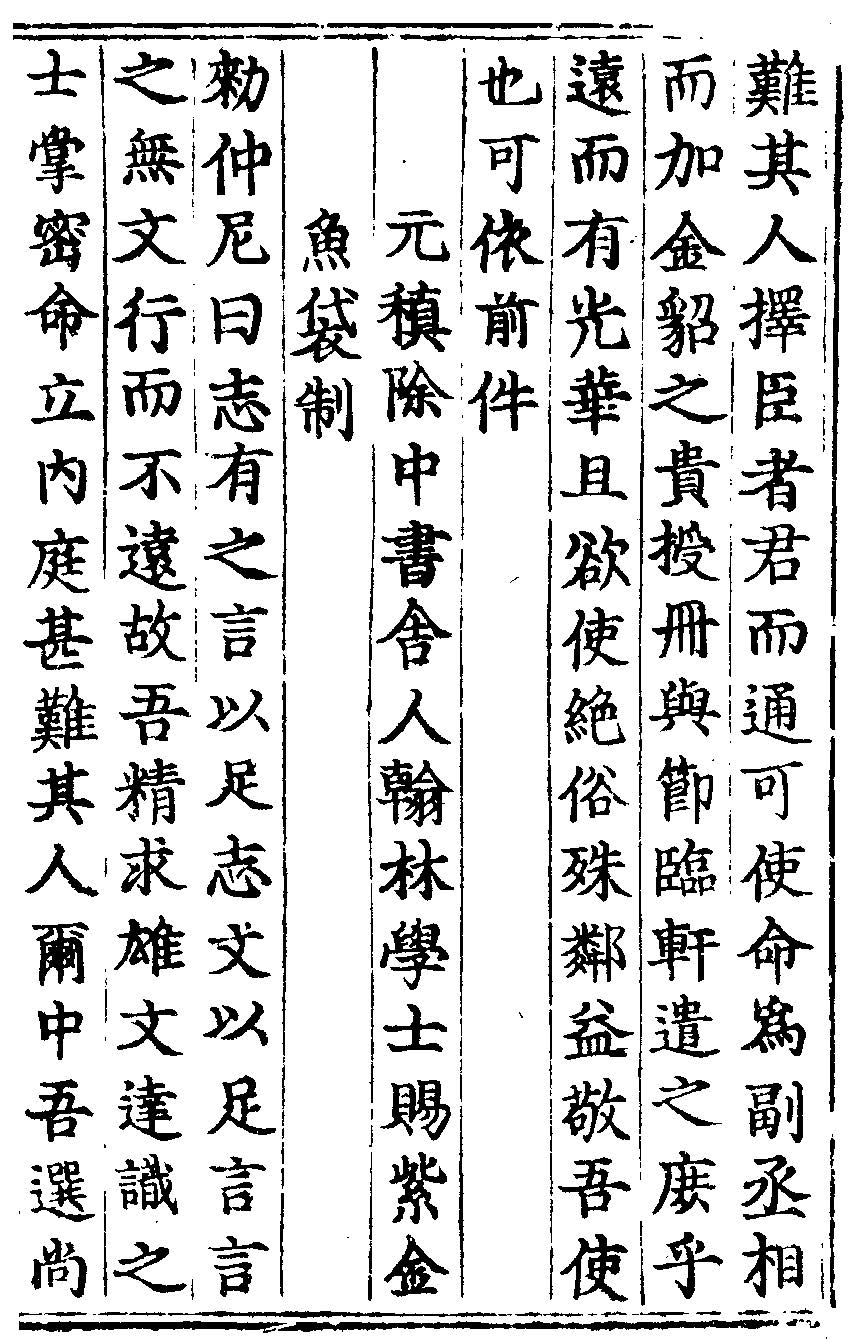 難其人擇臣者君而通可使命爲副丞相
而加金貂之貴授冊與節臨軒遣之庻乎
遠而有光華且欲使絶俗殊鄰益敬吾使
也可依前件
元稹除中書舍人翰林學士賜紫金
魚袋制
勑仲尼曰志有之言以足志文以足言言
之無文行而不遠故吾精求雄文達識之
士掌密命立內庭甚難其人爾中吾選尚